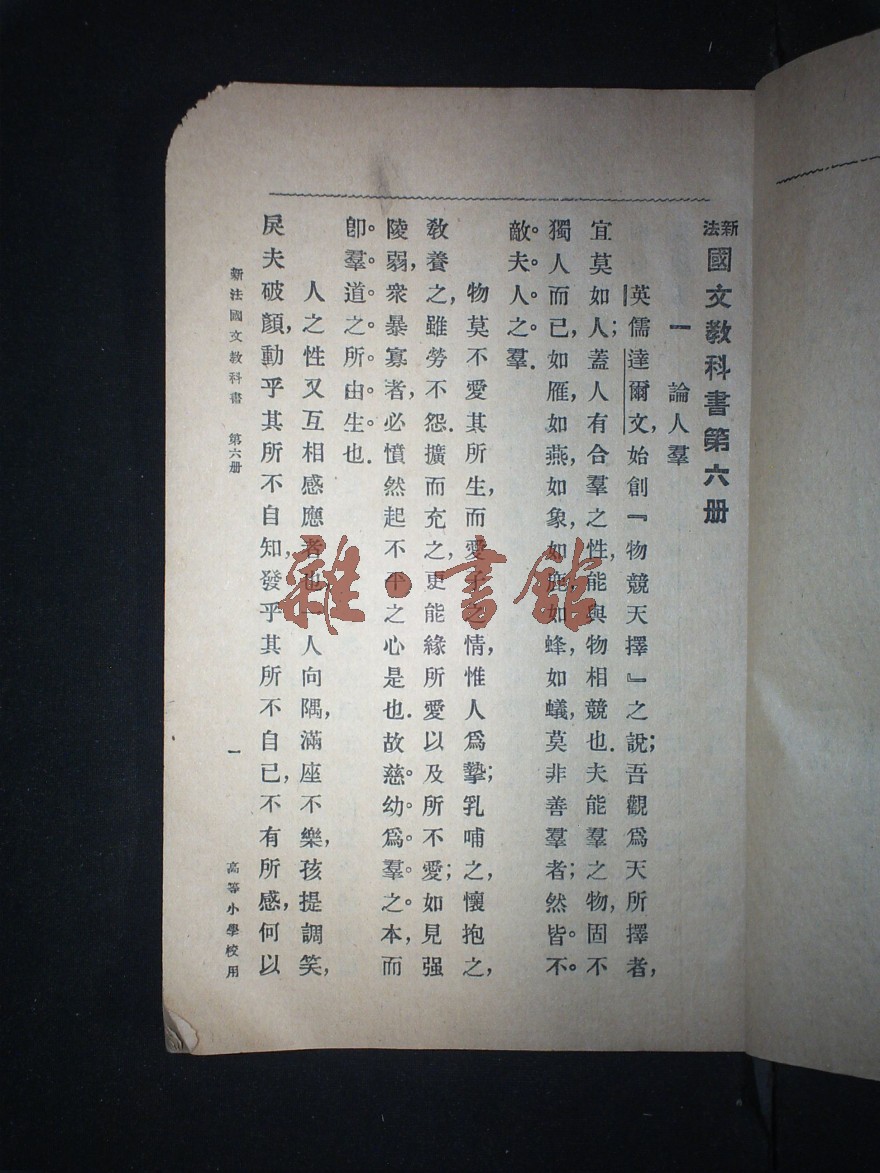 新法國文教科書第六册
一 論人羣
英儒達爾文,始創『物競天擇』之說;吾觀爲天所擇者,
宜莫如人;蓋人有合羣之性,能與物相競也.夫能羣之物,固不
獨人而已,如雁,如燕,如象,如鹿,如蜂,如蟻,莫非善羣者;然皆。不。
敵。夫。人。之。羣.
物莫不愛其所生,而愛子之情,惟人爲摯;乳哺之,懷抱之,
敎養之,雖勞不怨.擴而充之,更能緣所愛以及所不愛;如見强
陵弱,衆暴寡者,必憤然起不平之心是也.故慈。幼。爲。羣。之。本,而
卽。羣。道。之。所。由。生。也.
人之性又互相感應者也.一人向隅,滿座不樂,孩提調笑,
戾夫破顏,動乎其所不自知,發乎其所不自已,不有所感,何以
新法國文敎科書 第六册 一 高等小學校用
雜·書館